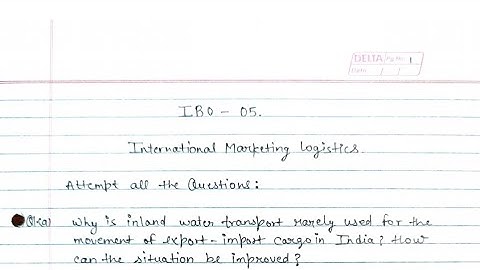 DELTA Pg No. 1
Date / /
IBO - 05.
International Marketing Logistics.
Attempt all the Questions:
Q1<a) Why is inland water transport rarely used for the
movement of export-import cargo in India? How
can the situation be improved?